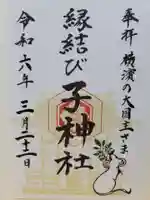 奉拝 横濱の大国主さま
縁結び 子神社
令和六年 三月二十一日